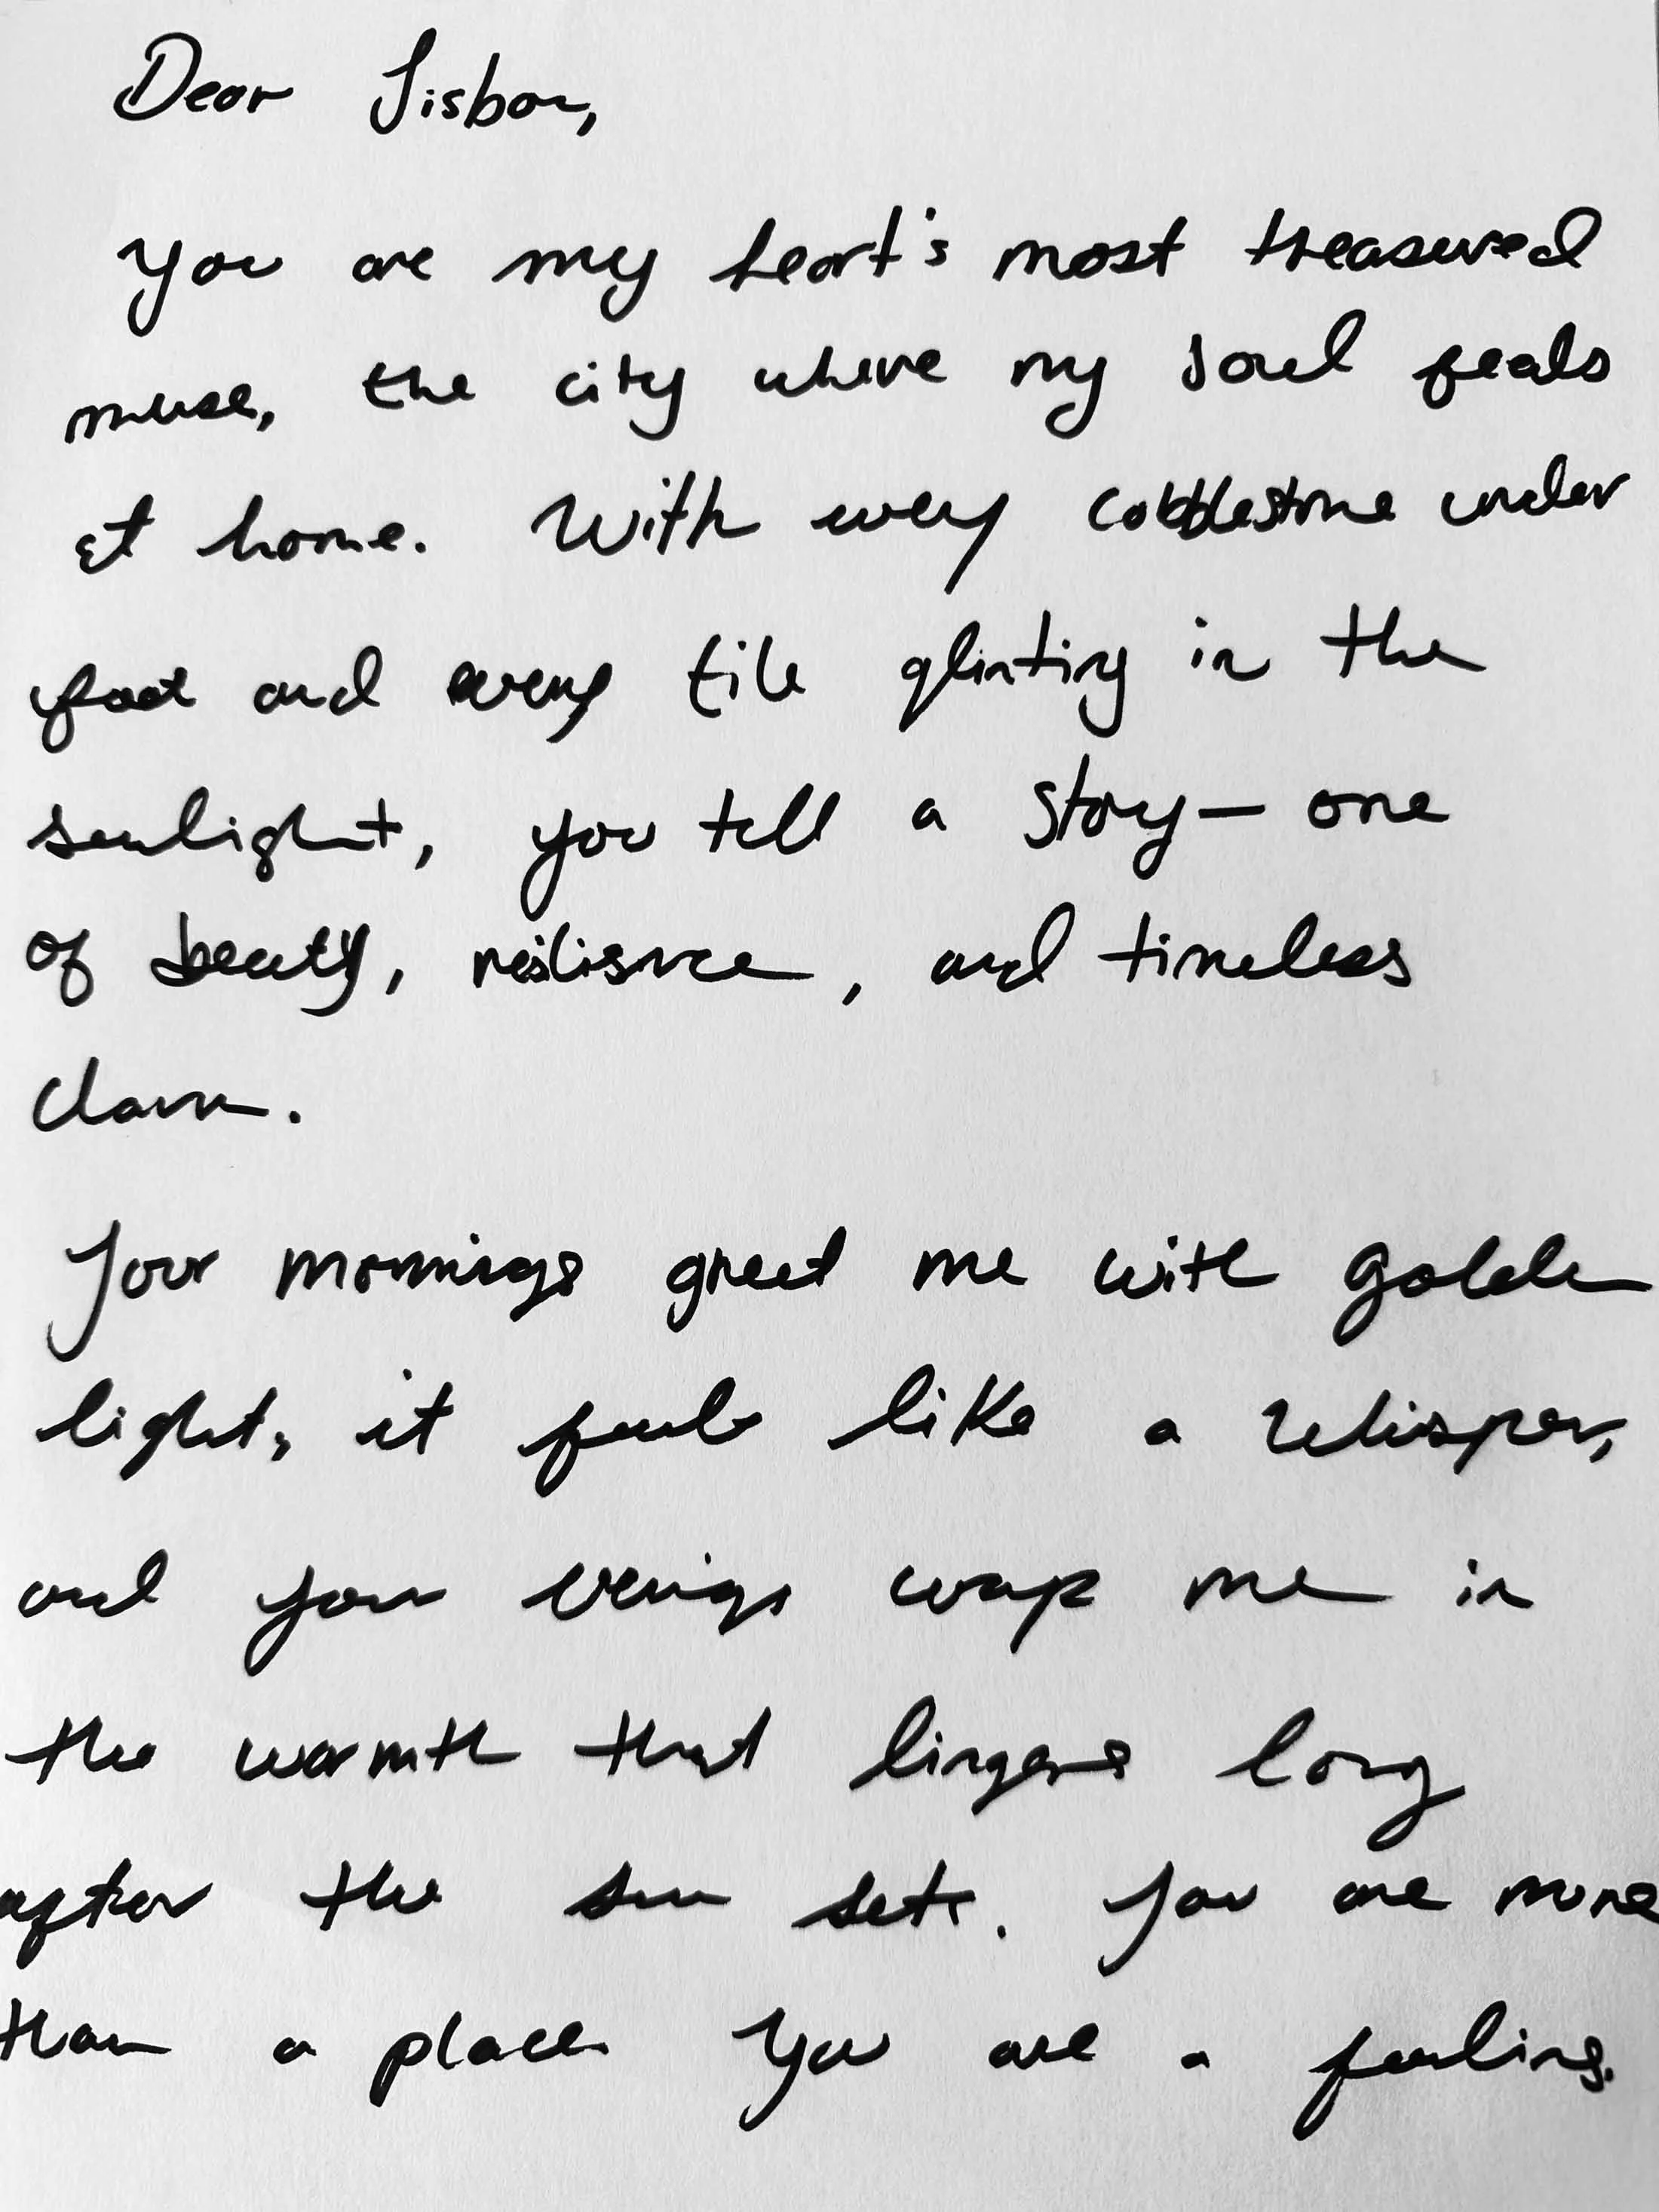 Dear Lisbon,
You are my heart's most treasured
muse, the city where my soul feels
at home. With every cobblestone under
foot and every tile glinting in the
sunlight, you tell a story— one
of beauty, resilience, and timeless
charm.
Your mornings greet me with golden
light, it feels like a whisper,
and your evenings wrap me in
the warmth that lingers long
after the sun sets. You are more
than a place. You are a feeling.